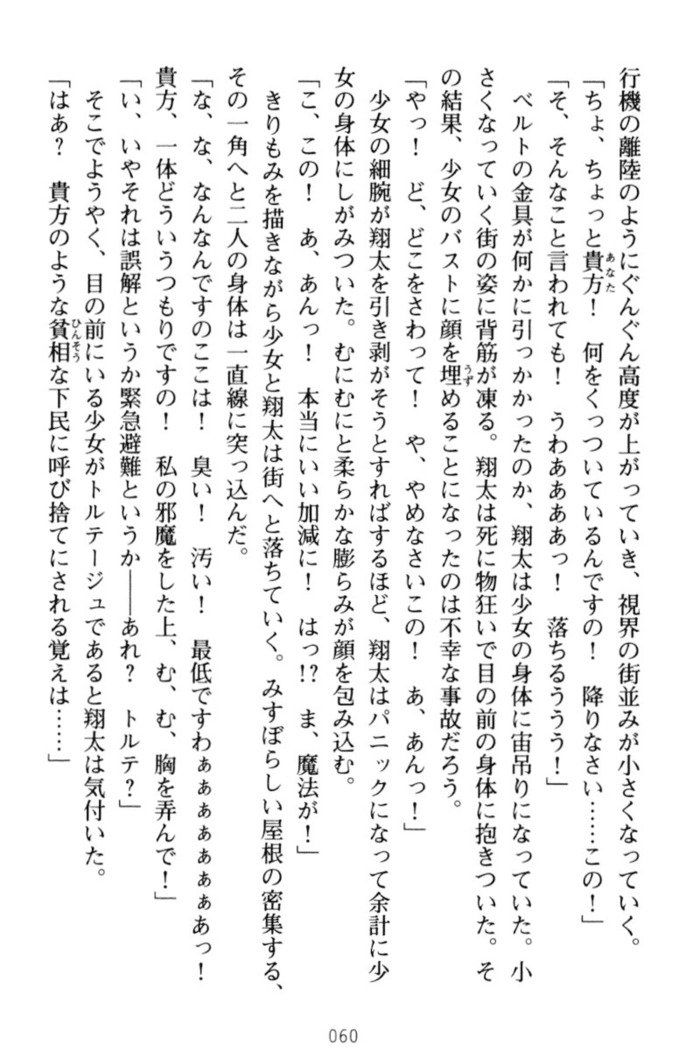 行機の離陸のようにぐんぐん高度が上がっていき、視界の街並みが小さくなっていく。
「ちょ、ちょっと貴方！　何をくっついているんですの！　降りなさい……この！」
あなた
「そ、そんなこと言われても！　うわああああっ！　落ちるううう！」
ベルトの金具が何かに引っかかったのか、翔太は少女の身体に宙吊りになっていた。小
さくなっていく街の姿に背筋が凍る。翔太は死に物狂いで目の前の身体に抱きついた。そ
の結果、少女のバストに顔を埋めることになったのは不幸な事故だろう。
うず
「やっ！　ど、どこをさわって！　や、やめなさいこの！　あ、あんっ！」
少女の細腕が翔太を引き剥がそうとすればするほど、翔太はパニックになって余計に少
女の身体にしがみついた。むにむにと柔らかな膨らみが顔を包み込む。
「こ、この！　あ、あんっ！　本当にいい加減に！　はっ!?　ま、魔法が！」
きりもみを描きながら少女と翔太は街へと落ちていく。みすぼらしい屋根の密集する、
その一角へと二人の身体は一直線に突っ込んだ。
「な、な、なんなんですのここは！　臭い！　汚い！　最低ですわぁぁぁぁぁぁあっ！
貴方、一体どういうつもりですの！　私の邪魔をした上、む、む、胸を弄んで！」
「い、いやそれは誤解というか緊急避難というか――あれ？　トルテ？」
そこでようやく、目の前にいる少女がトルテージュであると翔太は気付いた。
「はあ？　貴方のような貧相な下民に呼び捨てにされる覚えは……」
ひんそう
060